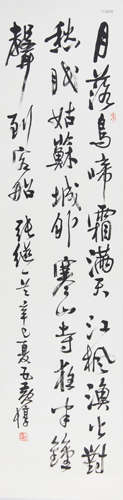 月落烏啼霜滿天江楓漁火對
愁眠姑蘇城外寒山寺夜半鐘
聲到客船張繼一首辛巳夏